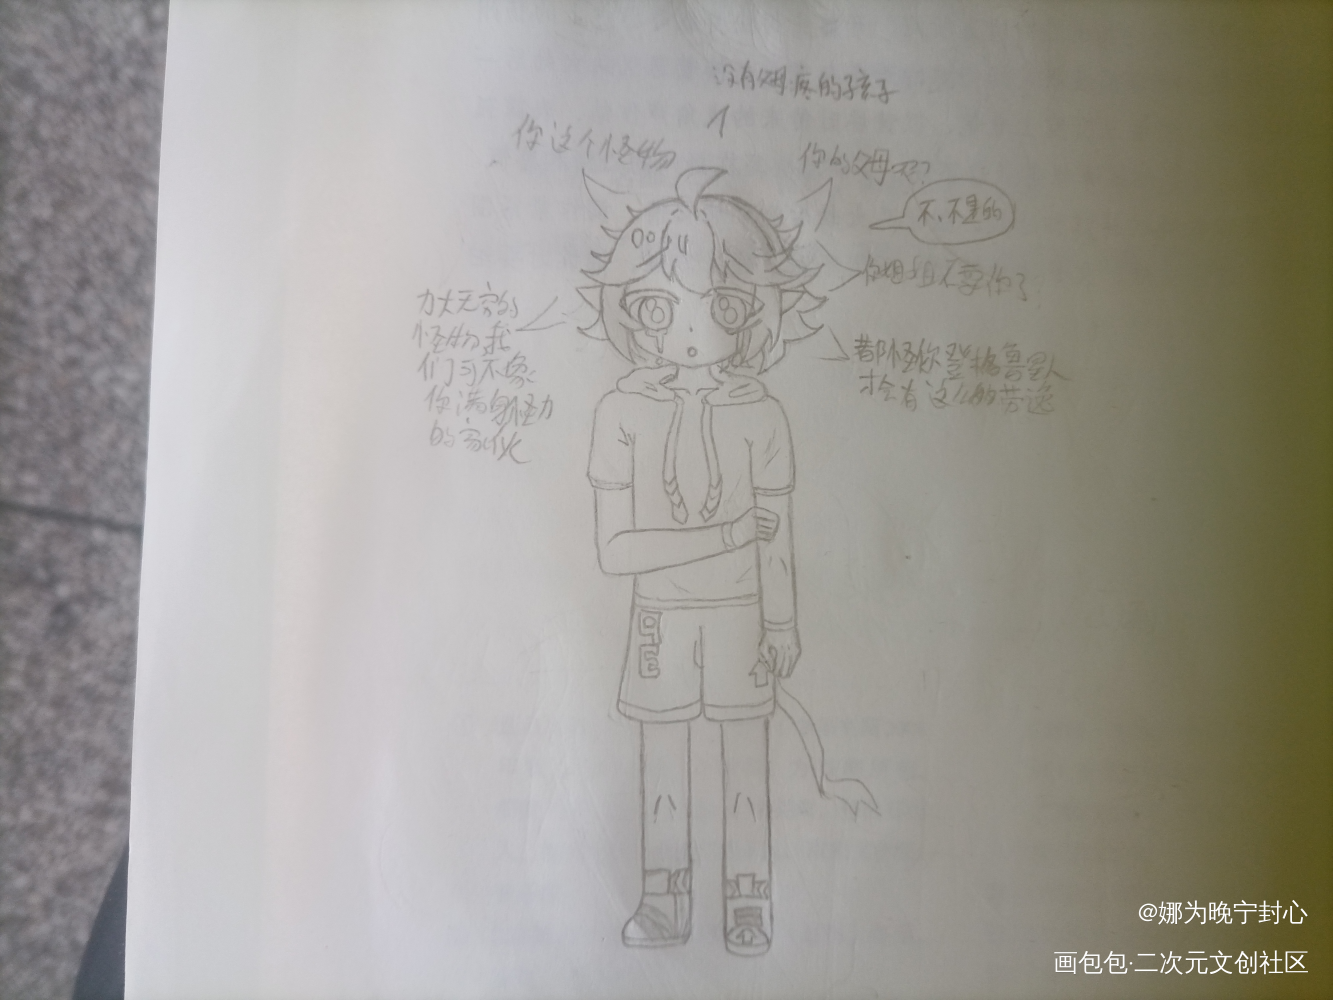 没有父母疼的孩子
你这个怪物
你的父母呢？
不、不是的
你姐姐不要你了
力大无穷的
怪物我
们可不象
你满身怪力
的家伙
都怪你登格鲁星人
才会有这么的
OO
9
E
@娜为晚宁封心
画包包·二次元文创社区